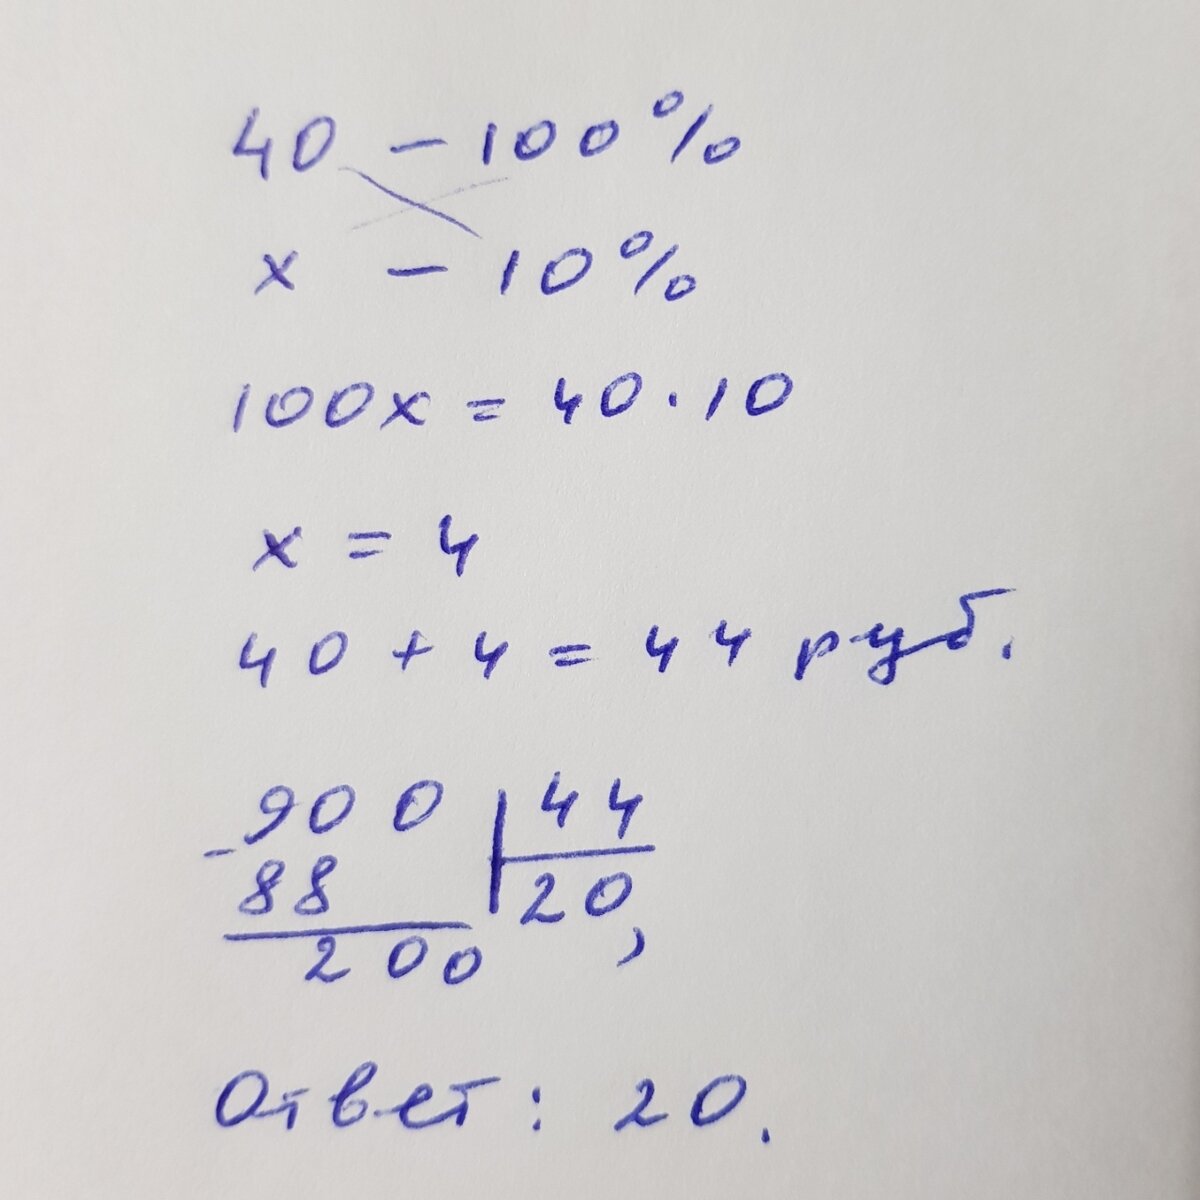 40 - 100%
x - 10%
100x = 40 · 10
x = 4
40 + 4 = 44 руб.
900 | 44
- 88 | 20,
200
Ответ: 20.